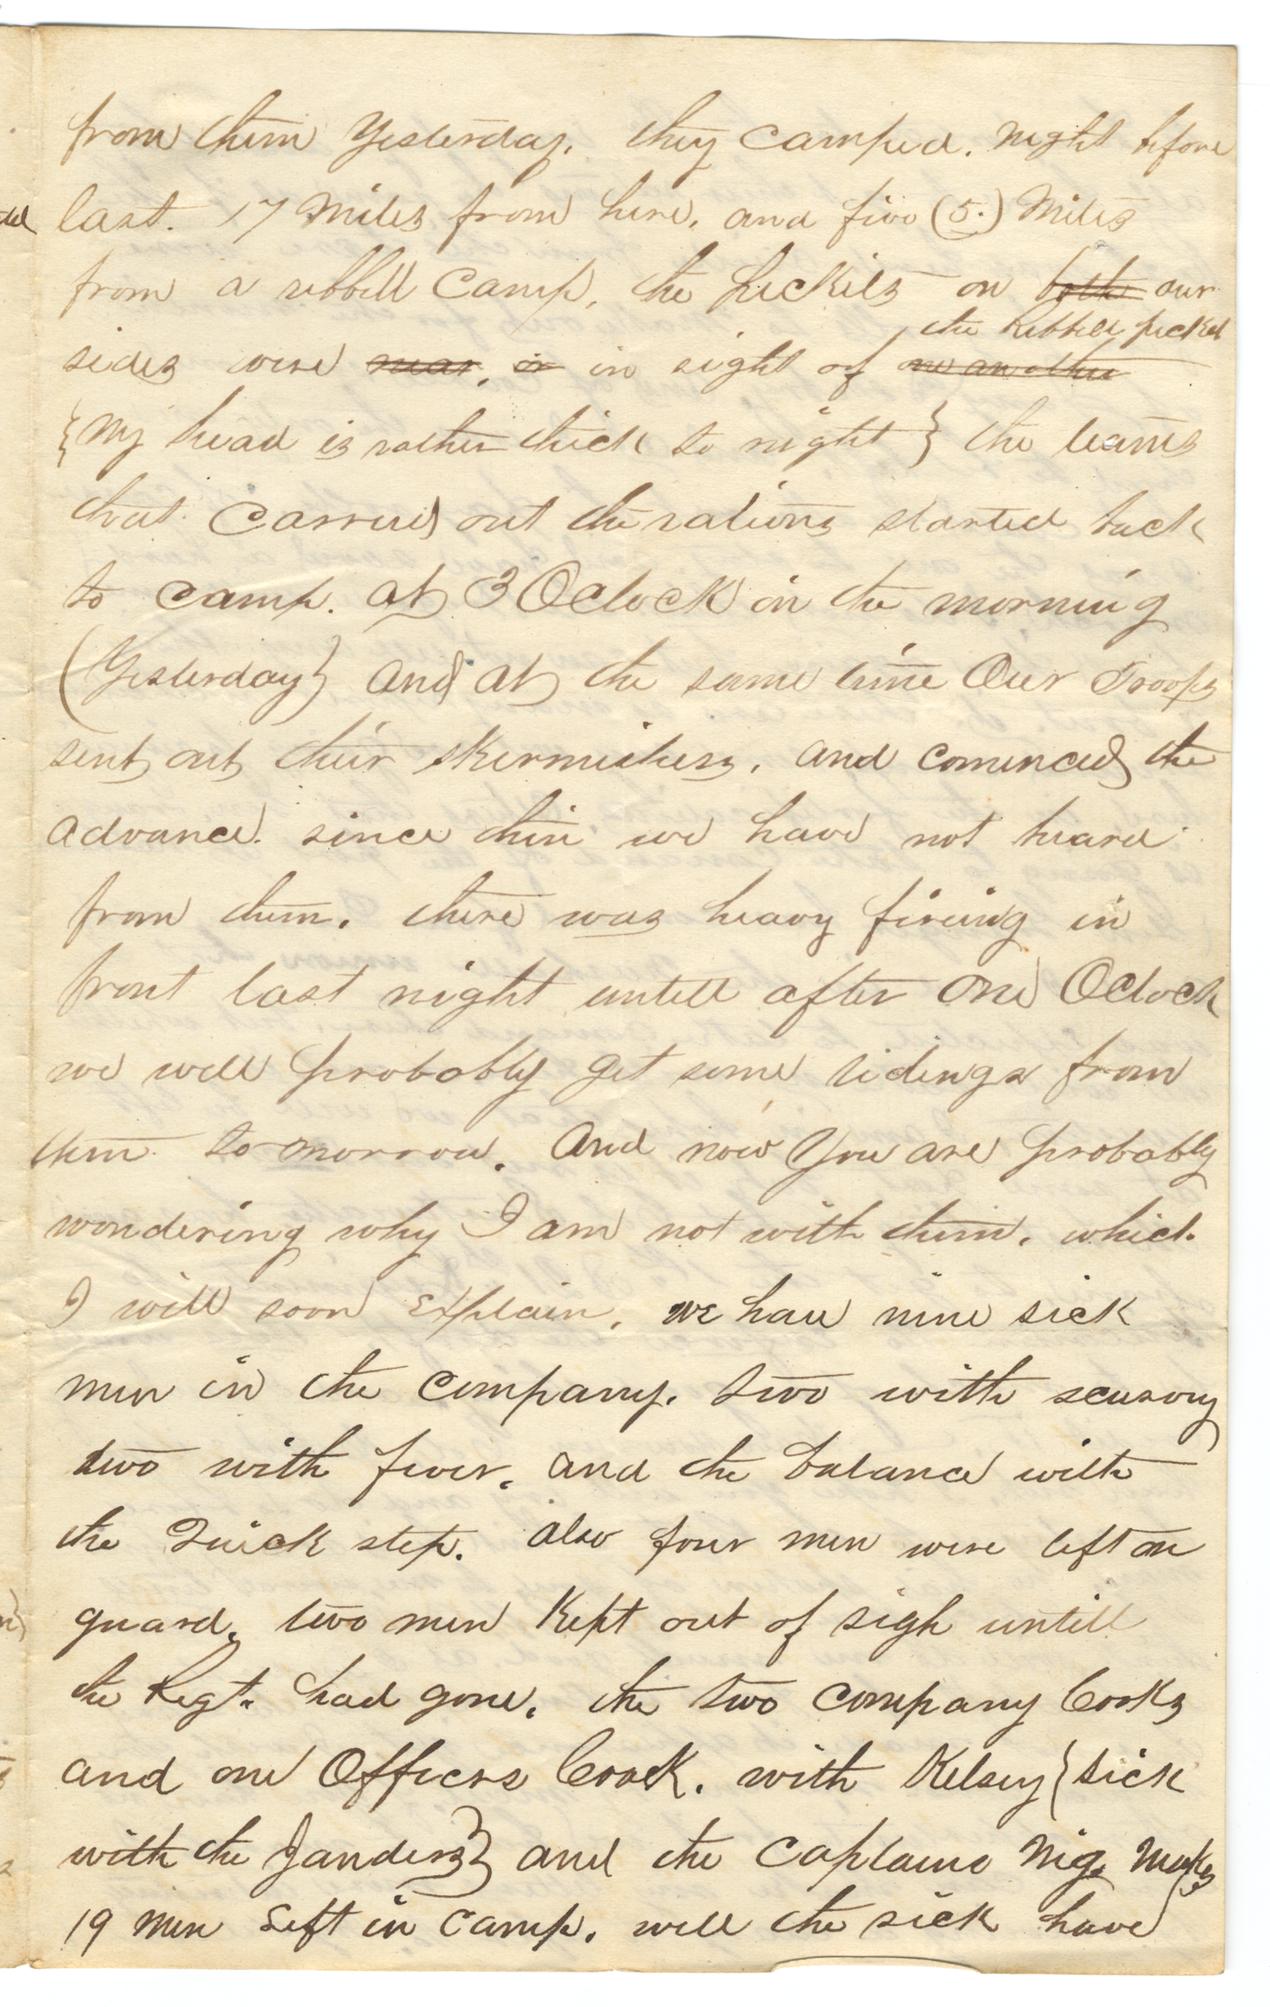 from them Yesterday. they camped. night before
last. 17 Miles from here, and five (5.) Miles
from a rebbell Camp, the pickits on both our
the Rebbell picket
sides were near, or in sight of one another
{My head is rather thick to night} the teams
that Carried out the rations started back
to camp. at 3 Oclock in the morning
(Yesterday} and at the same time Our Troops
sent out their skermishers, and comenced the
advance. since then we have not heard
from them. there was heavy fireing in
front last night untill after one Oclock
we will probably get some tidings from
them to-morrow. And now You are probably
wondering why I am not with them, which
I will soon Explain, we have nine sick
men in the company. two with scurvy
two with fever, and the balance with
the Quick step. also four men were left on
guard, two men Kept out of sigh untill
the Regt. had gone, the two company Cooks
and one Officers Cook. with Kelsey {sick
with the Janders} and the Captains Nig. Makes
19 men Left in Camp. well the sick have